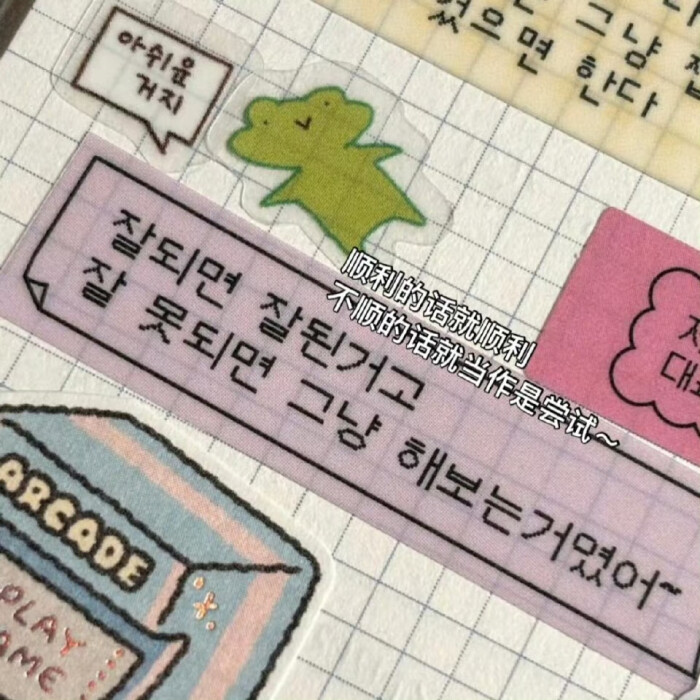 그냥
졌으면 한다
아쉬울
거지
잘되면 잘된거고
잘 못되면 그냥 해보는거였어~
顺利的话就顺利
不顺的话就当作是尝试~
ARCADE
PLAY
GAME